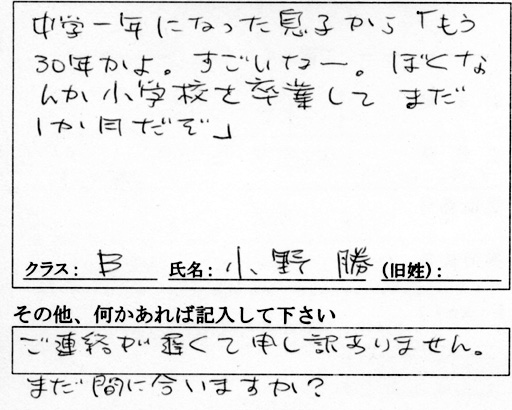 中学一年になった息子から「もう
30年かよ。すごいなー。ぼくな
んか小学校を卒業して まだ
1か月だぞ」
クラス: B 氏名: 小野 勝 (旧姓):
その他、何かあれば記入して下さい
ご連絡が遅くて申し訳ありません。
まだ間に合いますか?